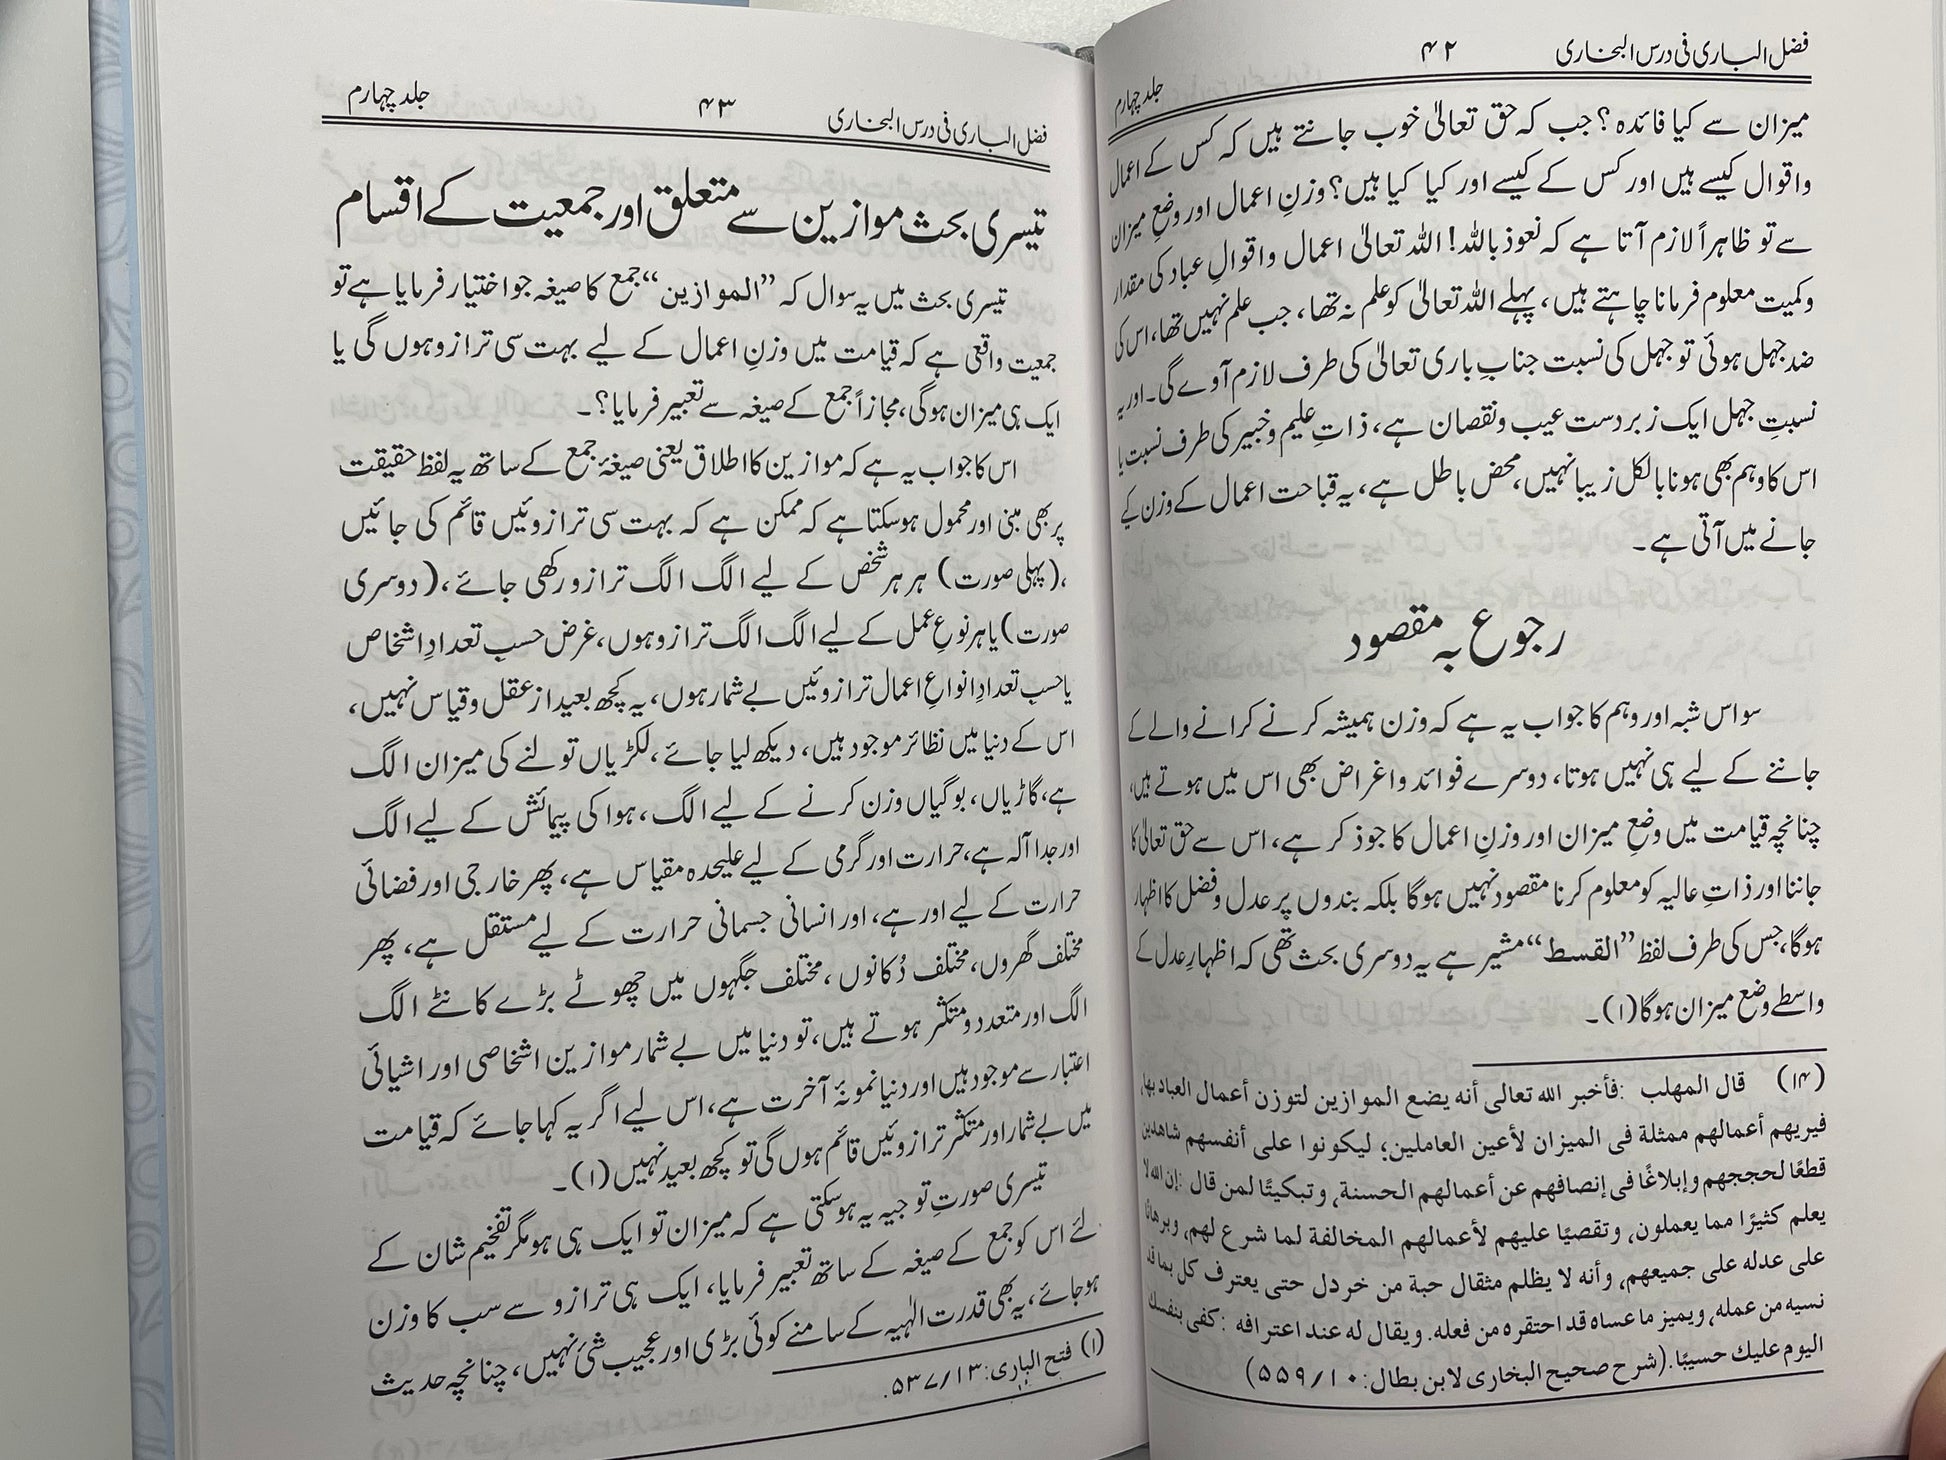 فضل الباری فی درس البخاری
۴۲
جلد چہارم
میزان سے کیا فائدہ؟ جب کہ حق تعالیٰ خوب جانتے ہیں کہ کس کے اعمال
واقوال کیسے ہیں اور کس کے کیسے اور کیا کیا ہیں؟ وزنِ اعمال اور وضعِ میزان
سے تو ظاہراً لازم آتا ہے کہ نعوذ باللہ! اللہ تعالیٰ اعمال واقوالِ عباد کی مقدار
وکمیت معلوم فرمانا چاہتے ہیں، پہلے اللہ تعالیٰ کو علم نہ تھا، جب علم نہیں تھا، اس کی
ضد جہل ہوئی تو جہل کی نسبت جنابِ باری تعالیٰ کی طرف لازم آوے گی۔ اور یہ
نسبتِ جہل ایک زبردست عیب ونقصان ہے، ذاتِ علیم وخبیر کی طرف نسبت یا
اس کا وہم بھی ہونا بالکل زیبا نہیں، محض باطل ہے، یہ قباحت اعمال کے وزن کیے
جانے میں آتی ہے۔
رجوع بہ مقصود
سو اس شبہ اور وہم کا جواب یہ ہے کہ وزن ہمیشہ کرنے کرانے والے کے
جاننے کے لیے ہی نہیں ہوتا، دوسرے فوائد واغراض بھی اس میں ہوتے ہیں،
چنانچہ قیامت میں وضعِ میزان اور وزنِ اعمال کا جو ذکر ہے، اس سے حق تعالیٰ کا
جاننا اور ذاتِ عالیہ کو معلوم کرنا مقصود نہیں ہوگا بلکہ بندوں پر عدل وفضل کا اظہار
ہوگا، جس کی طرف لفظ ”القسط“ مشیر ہے یہ دوسری بحث تھی کہ اظہارِ عدل کے
واسطے وضع میزان ہوگا (۱)۔
(۱۴) قال المهلب :فأخبر الله تعالى أنه يضع الموازين لتوزن أعمال العباد بها،
فيريهم أعمالهم ممثلة فى الميزان لأعين العاملين؛ ليكونوا على أنفسهم شاهدين
قطعًا لحججهم وإبلاغًا فى إنصافهم عن أعمالهم الحسنة، وتبكيتًا لمن قال :إن الله لا
يعلم كثيرًا مما يعملون، وتقصيًا عليهم لأعمالهم المخالفة لما شرع لهم، وبرهانا
على عدله على جميعهم، وأنه لا يظلم مثقال حبة من خردل حتى يعترف كل بما قد
نسيه من عمله، ويميز ما عساه قد احتقره من فعله. ويقال له عند اعترافه :كفى بنفسك
اليوم عليك حسيبًا. (شرح صحيح البخارى لابن بطال: ۱۰/۵۵۹)
فضل الباری فی درس البخاری
۴۳
جلد چہارم
تیسری بحث موازین سے متعلق اور جمعیت کے اقسام
تیسری بحث میں یہ سوال کہ ”الموازین“ جمع کا صیغہ جو اختیار فرمایا ہے تو
جمعیت واقعی ہے کہ قیامت میں وزنِ اعمال کے لیے بہت سی ترازو ہوں گی یا
ایک ہی میزان ہوگی، مجازاً جمع کے صیغہ سے تعبیر فرمایا؟۔
اس کا جواب یہ ہے کہ موازین کا اطلاق یعنی صیغۂ جمع کے ساتھ یہ لفظ حقیقت
پر بھی مبنی اور محمول ہو سکتا ہے کہ ممکن ہے کہ بہت سی ترازوئیں قائم کی جائیں
،(پہلی صورت) ہر ہر شخص کے لیے الگ الگ ترازو رکھی جائے، (دوسری
صورت) یا ہر نوعِ عمل کے لیے الگ الگ ترازو ہوں، غرض حسب تعدادِ اشخاص
یا حسب تعدادِ انواعِ اعمال ترازوئیں بے شمار ہوں، یہ کچھ بعید از عقل وقیاس نہیں،
اس کے دنیا میں نظائر موجود ہیں، دیکھ لیا جائے، لکڑیاں تولنے کی میزان الگ
ہے، گاڑیاں، بوگیاں وزن کرنے کے لیے الگ، ہوا کی پیمائش کے لیے الگ
اور جدا آلہ ہے، حرارت اور گرمی کے لیے علیحدہ مقیاس ہے، پھر خارجی اور فضائی
حرارت کے لیے اور ہے، اور انسانی جسمانی حرارت کے لیے مستقل ہے، پھر
مختلف گھروں، مختلف دُکانوں، مختلف جگہوں میں چھوٹے بڑے کانٹے الگ
الگ اور متعدد ومتکثر ہوتے ہیں، تو دنیا میں بے شمار موازین اشخاصی اور اشیائی
اعتبار سے موجود ہیں اور دنیا نمونۂ آخرت ہے، اس لیے اگر یہ کہا جائے کہ قیامت
میں بے شمار اور متکثر ترازوئیں قائم ہوں گی تو کچھ بعید نہیں (۱)۔
تیسری صورتِ توجیہ یہ ہو سکتی ہے کہ میزان تو ایک ہی ہو مگر تفخیم شان کے
لئے اس کو جمع کے صیغہ کے ساتھ تعبیر فرمایا، ایک ہی ترازو سے سب کا وزن
ہوجائے، یہ بھی قدرت الٰہیہ کے سامنے کوئی بڑی اور عجیب شئ نہیں، چنانچہ حدیث
(۱) فتح الباری: ۱۳/۵۳۷.